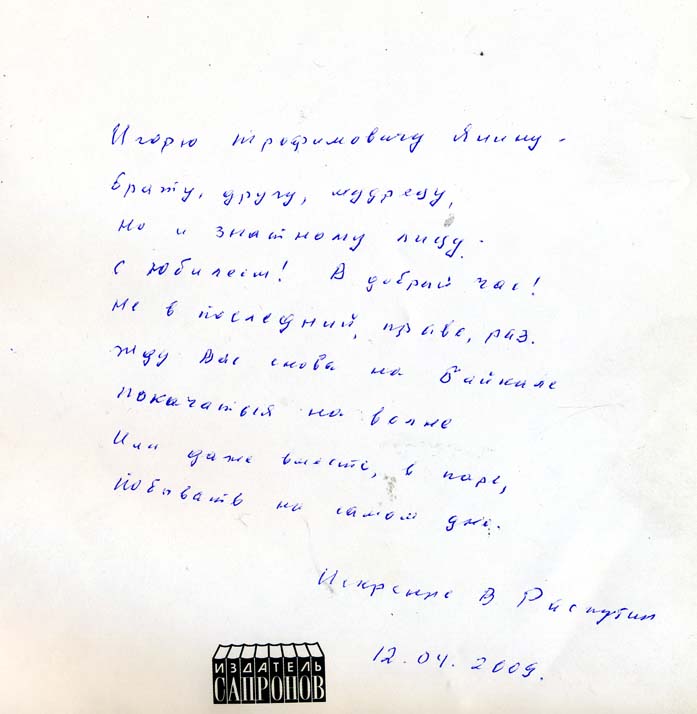 Игорю Трофимовичу Янину -
Брату, другу, мудрецу,
Но и знатному лицу.
С юбилеем! В добрый час!
Не в последний, право, раз.
Жду Вас снова на Байкале
Покачаться на волне
Или даже вместе, в паре,
Побывать на самом дне.
Искренне В Распутин
12.04.2009.
ИЗДАТЕЛЬ
САПРОНОВ